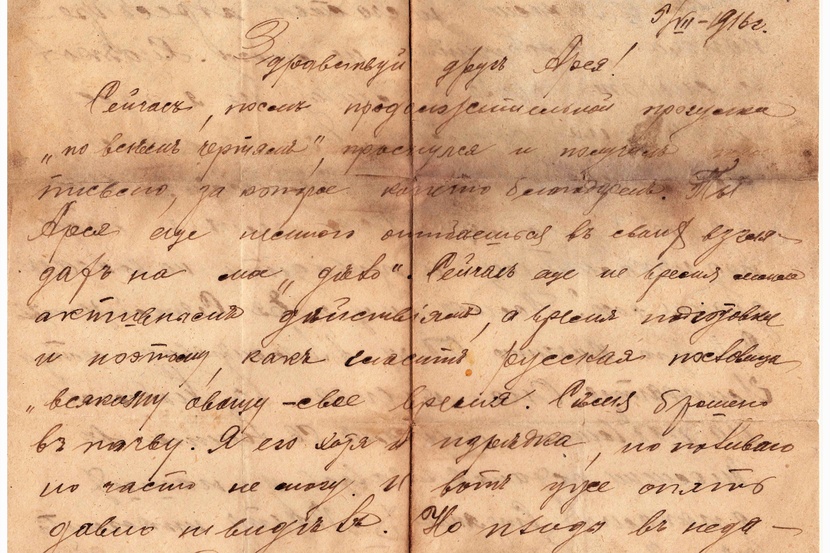 5/VII – 1916 г.
Здравствуй другъ Арся!
Сейчасъ, послѣ продолжительной прогулки
„по всѣмъ чертямъ", проснулся и получилъ
письмо, за которое благодаренъ. Ты
Арся еще немного ошибаешься въ своихъ взгля-
дахъ на „дѣло". Сейчасъ еще не время
активнымъ дѣйствіямъ, а время подготовки
и поэтому, какъ гласитъ русская пословица
„всякому овощу – свое время. Сѣмя брошено
въ почву. Я его хотя и изрѣдка, но поливаю
но часто не могу. И вотъ уже опять
давно не видѣлъ. Но всходы въ неда-